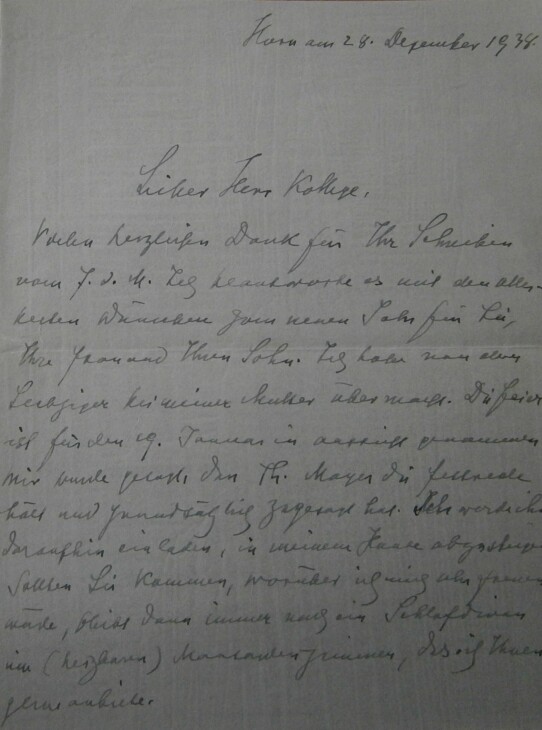 Horn am 28. Dezember 1938.
Lieber Herr Kollege,
Vielen herzlichen Dank für Ihr Schreiben
vom 7. d. M. Ich beantworte es mit den aller-
besten Wünschen zum neuen Jahr für Sie,
Ihre Frau und Ihren Sohn. Ich habe von dem
Leipziger bei meiner Mutter Die Feier
ist für den 19. Januar in aussicht genommen
mir wurde gesagt, dass Th. Mayer die Festrede
hält und grundsätzlich zugesagt hat. werde ich
daraufhin einladen, in meinem Hause abzusteigen
Sollten Sie kommen, worüber ich mich sehr freuen
würde, bleibt dann immer noch ein Schlafdivan
im (heizbaren) Mansardenzimmer, das ich Ihnen
gerne anbiete.